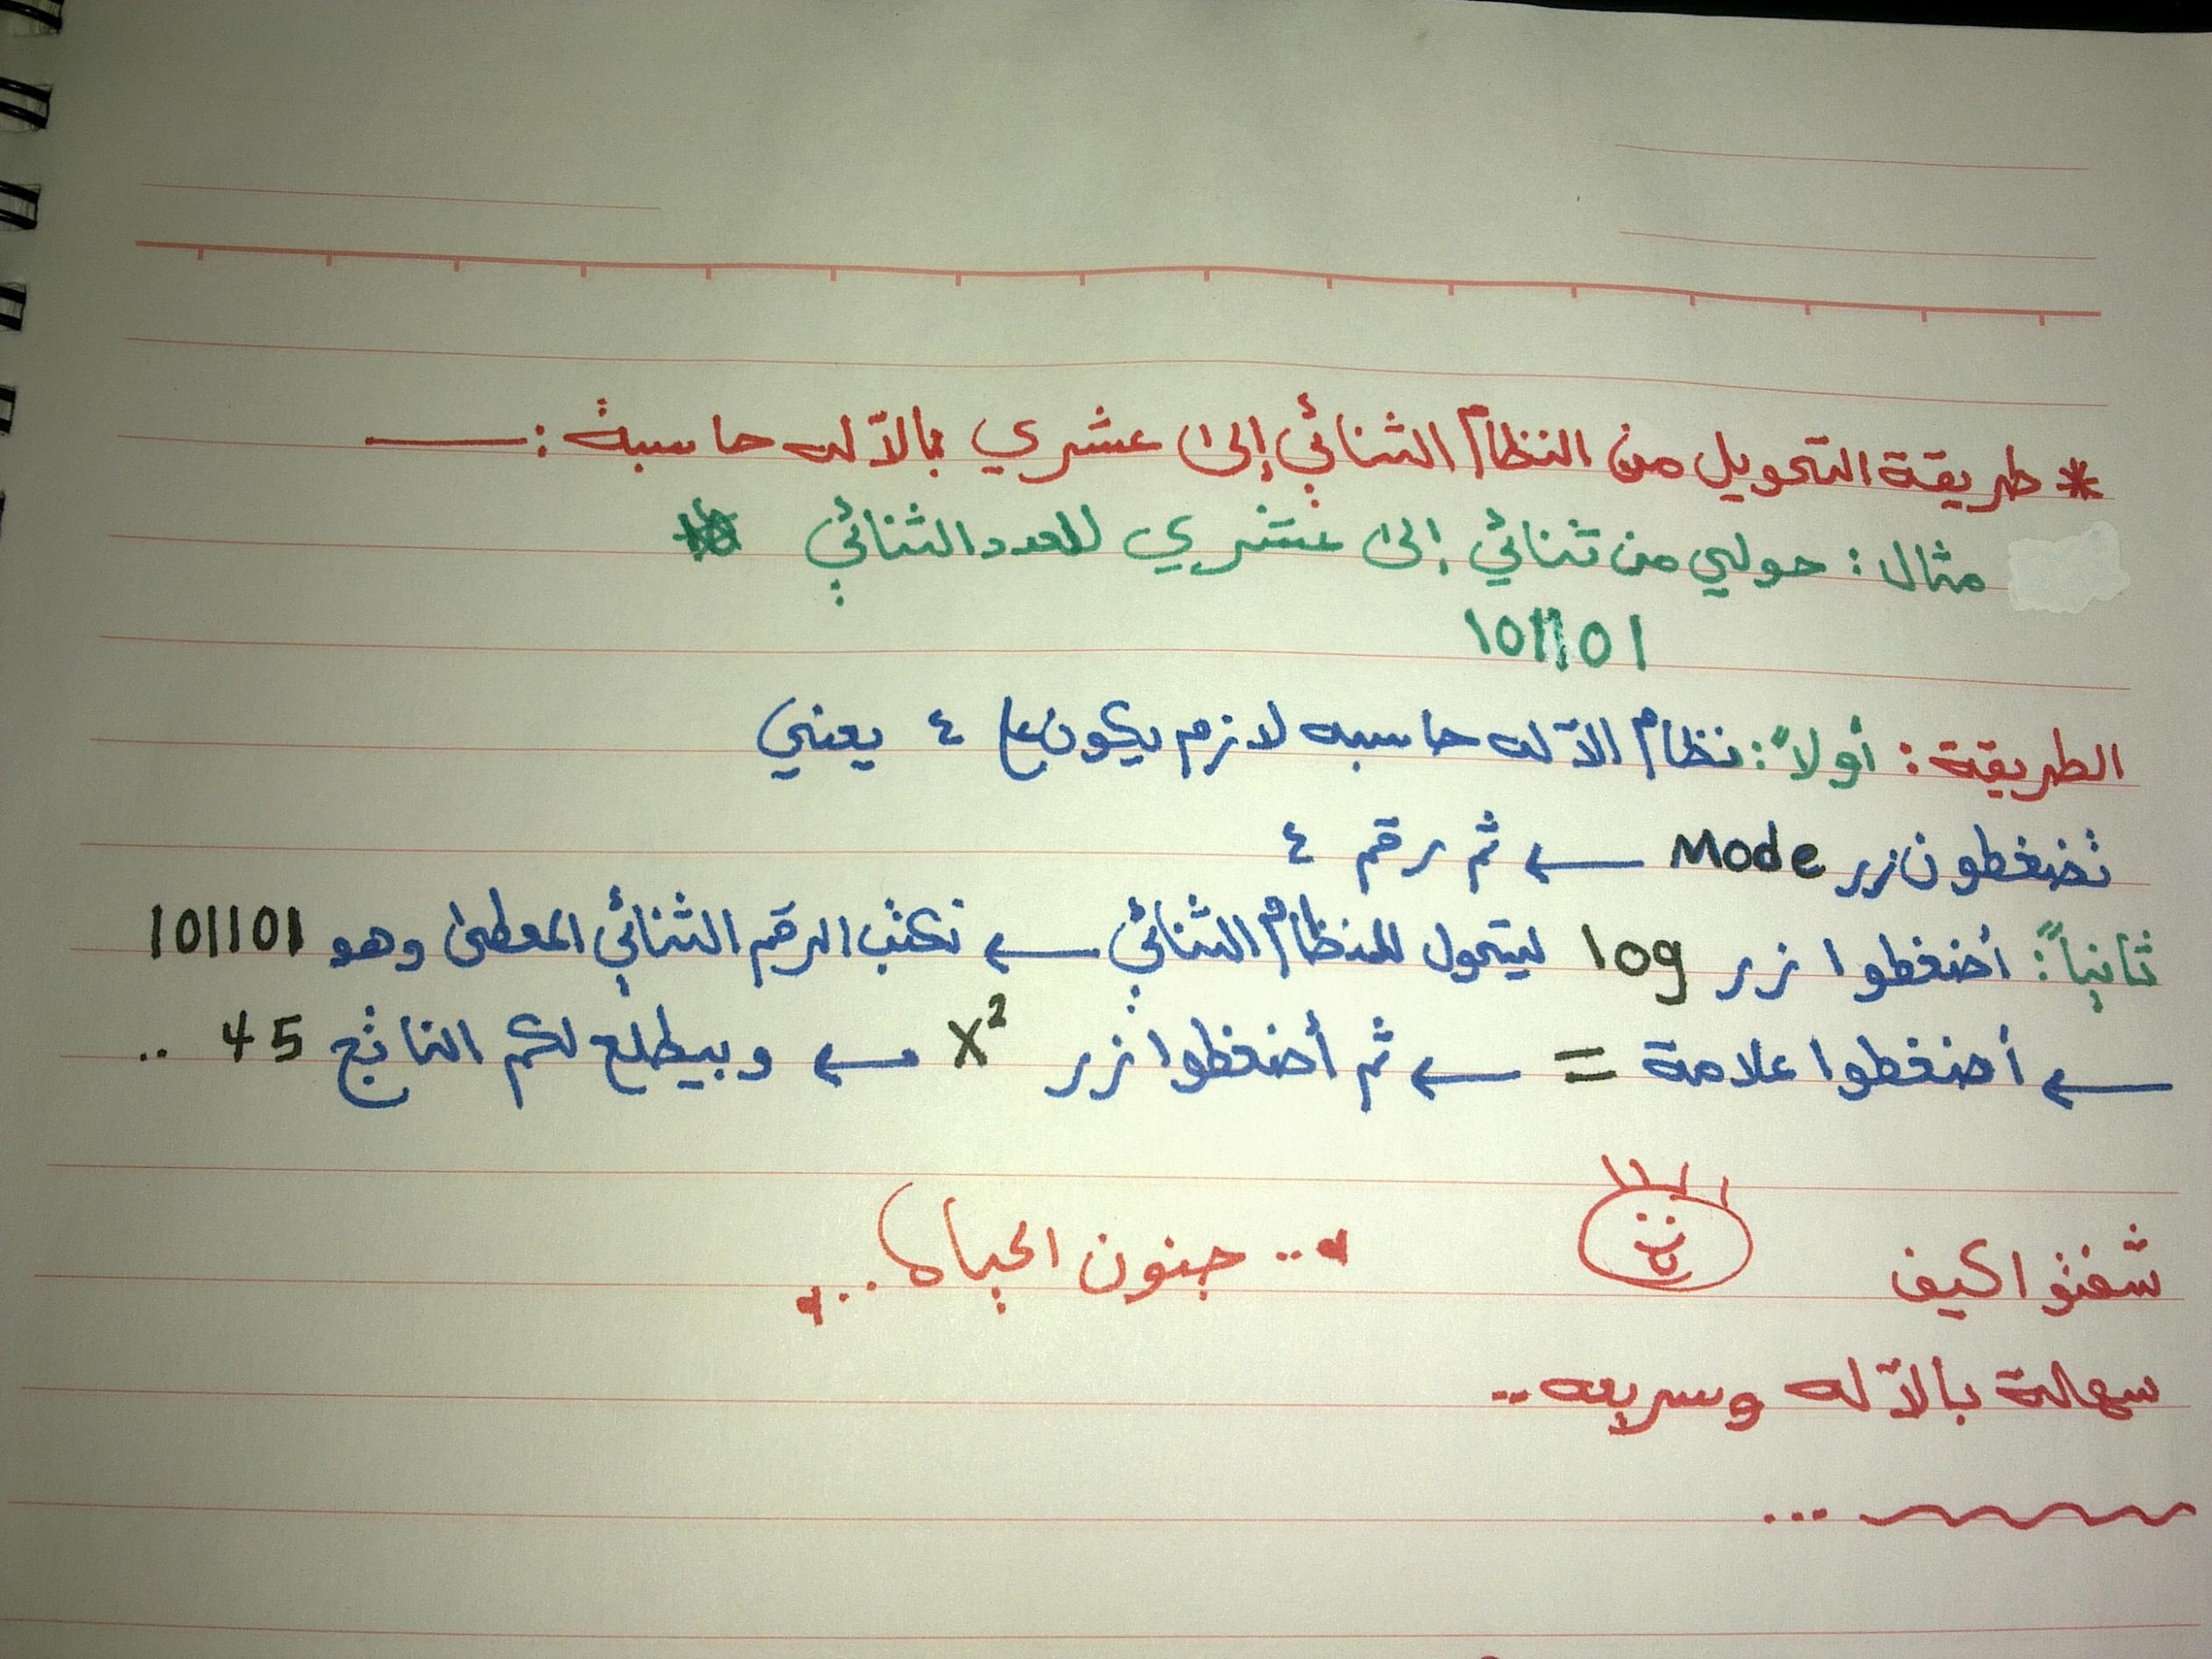 * طريقة التحويل من النظام الثنائي إلى عشري بالآله حاسبة :
مثال : حولي من ثنائي إلى عشري للعدد الثنائي
101101
الطريقة : أولاً : نظام الآله حاسبه لازم يكون على ٤ يعني
تضغطون زر Mode ← ثم رقم ٤
ثانياً : أضغطوا زر log ليتحول للنظام الثنائي ← نكتب الرقم الثنائي المعطى وهو 101101
← أضغطوا علامة = ← ثم أضغطوا زر X² ← وبيطلع لكم الناتج 45 ..
شفتوا كيف
♥.. جنون الحياه ..♥
سهلة بالآله وسريعه ..
...